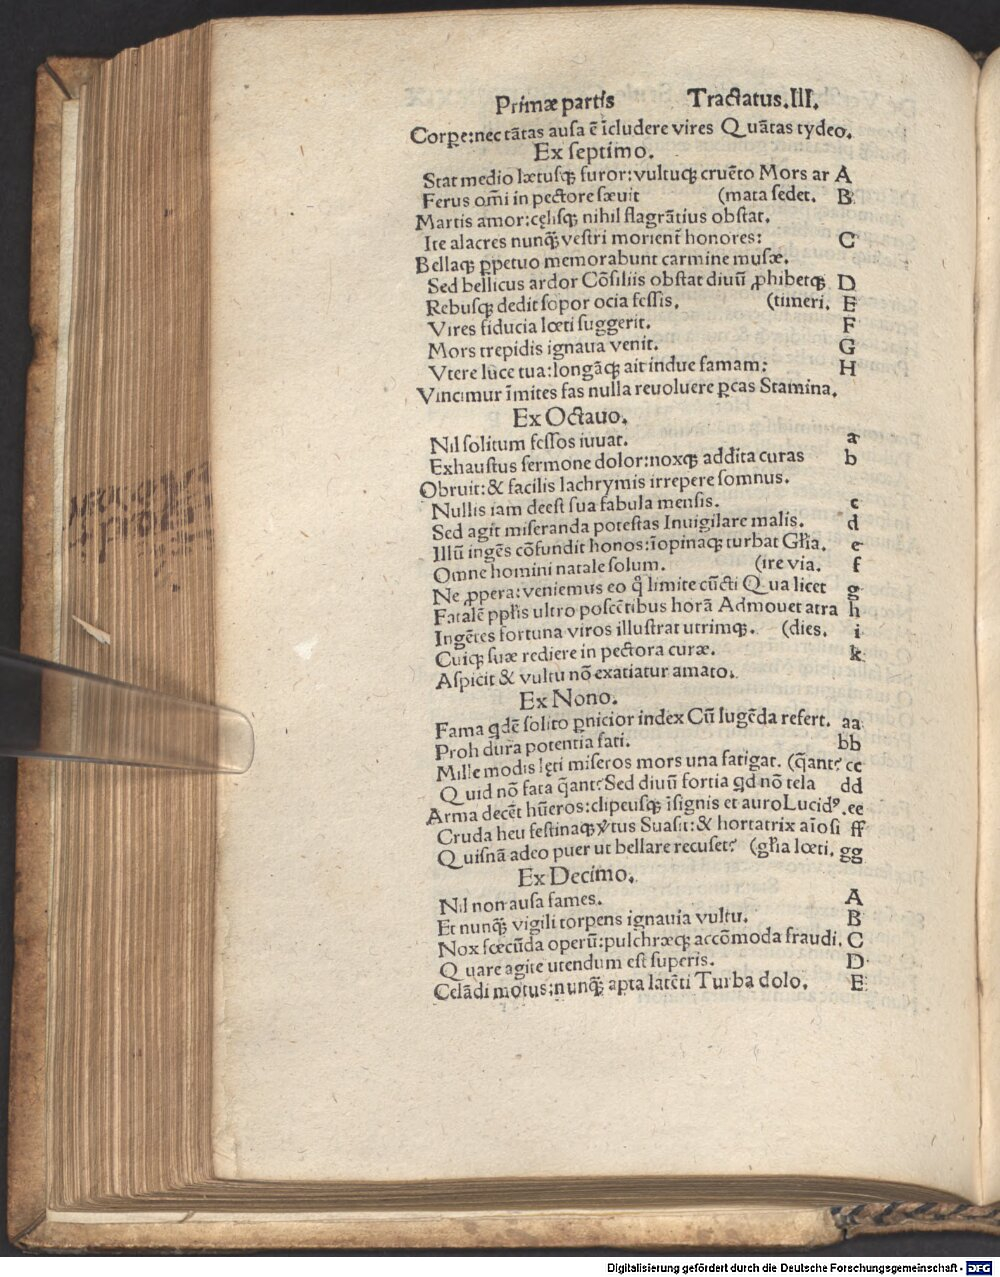 Primæ partis Tractatus.III.
Corꝑe:nec tãtas ausa ẽ ĩcludere vires Quãtas tydeo.
Ex septimo.
Stat medio lætusqꝫ furor:vultuqꝫ cruẽto Mors ar A
Ferus oĩm in pectore sæuit (mata sedet. B
Martis amor:cęlisqꝫ nihil flagrãtius obstat.
Ite alacres nunqꝫ̃ vestri morient̃ honores: C
Bellaqꝫ ꝑpetuo memorabunt carmine musæ.
Sed bellicus ardor Cõsiliis obstat diuũ ꝓhibetqꝫ D
Rebusqꝫ dedit sopor ocia fessis. (timeri. E
Vires fiducia lœti suggerit. F
Mors trepidis ignaua venit. G
Vtere luce tua:longãqꝫ ait indue famam: H
Vincimur ĩmites fas nulla reuoluere ꝑcas Stamina.
Ex Octauo.
Nil solitum fessos iuuat. a
Exhaustus sermone dolor:noxqꝫ addita curas b
Obruit:& facilis lachrymis irrepere somnus.
Nullis iam deest sua fabula mensis. c
Sed agit miseranda potestas Inuigilare malis. d
Illũ ingẽs cõfundit honos:ĩopinaqꝫ turbat Gl̃ia. e
Omne homini natale solum. (ire via. f
Ne ꝓpera:veniemus eo q̃ limite cũcti Qua licet g
Fatalẽ ppl̃is ultro poscẽtibus horã Admouet atra h
Ingẽtes fortuna viros illustrat utrimqꝫ. (dies. i
Cuiqꝫ suæ rediere in pectora curæ. k
Aspicit & vultu nõ exatiatur amato.
Ex Nono.
Fama qdẽ solito ꝑnicior index Cũ lugẽda refert. aa
Proh dura potentia fati. bb
Mille modis lęti miseros mors una fatigat. (q̃ant? cc
Quid nõ fata q̃ant?Sed diuũ fortia qd nõ tela dd
Arma decẽt hũeros:clipeusqꝫ ĩsignis et auro Lucidꝰ. ee
Cruda heu festinaqꝫ v̾tus Suasit:& hortatrix aĩosi ff
Quisnã adeo puer ut bellare recuset? (gl̃ia lœti. gg
Ex Decimo.
Nil non ausa fames. A
Et nunqꝫ̃ vigili torpens ignauia vultu. B
Nox fœcũda operũ:pulchræqꝫ accõmoda fraudi. C
Quare agite utendum est superis. D
Celãdi motus:nunqꝫ̃ apta latẽti Turba dolo. E
Digitalisierung gefördert durch die Deutsche Forschungsgemeinschaft - DFG